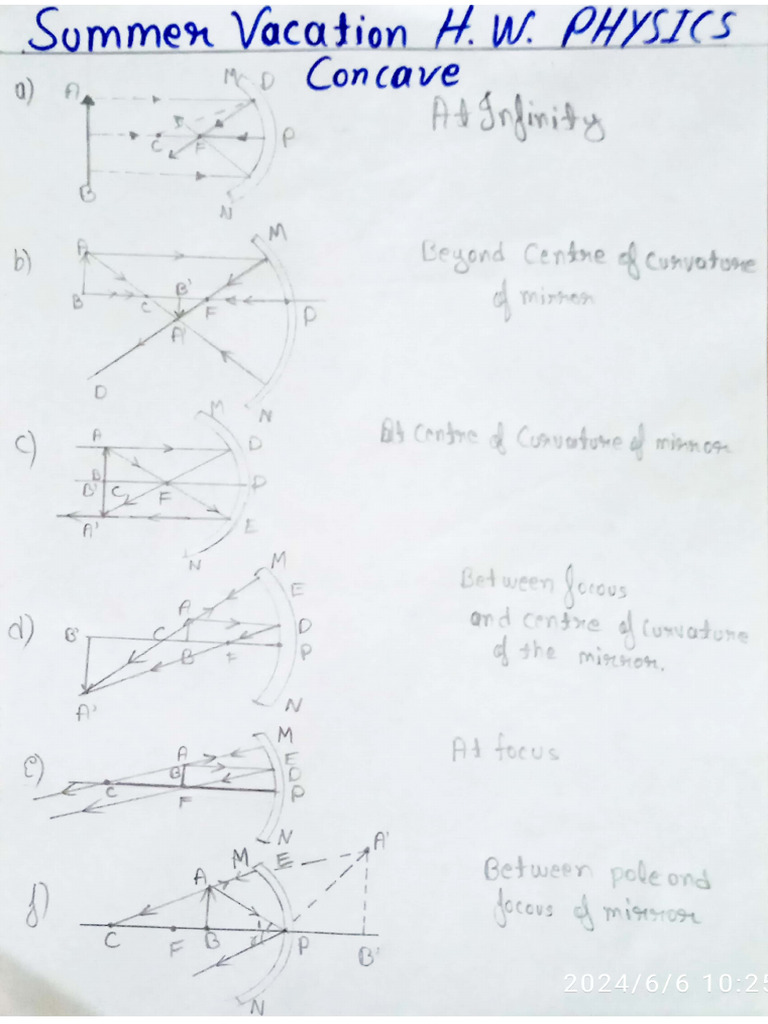 Summer Vacation H. W. PHYSICS
Concave
a)
M D
A
At Infinity
C F P
B
N
b)
M
A
Beyond Centre of curvature
of mirror
B C B' F P
A'
D
N
c)
M
A D
At Centre of Curvature of mirror
B
B' C F P
A' E
N
d)
M
E
Between focous
and centre of curvature
of the mirror.
A
B' C D
B F P
A'
N
e)
M
At focus
A E
B D
C F P
N
f)
M E A'
A
Between pole and
focous of mirror
C F B P B'
N
2024/6/6 10:25